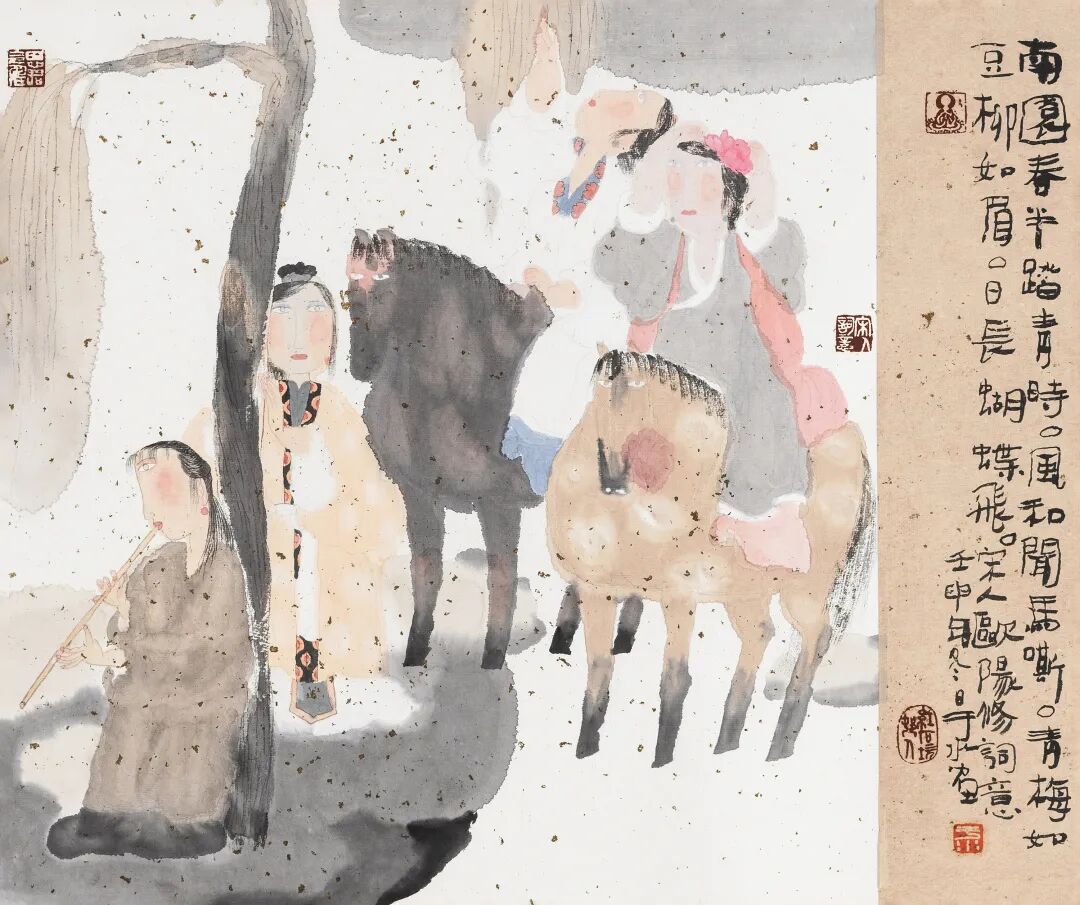 南園春半踏青時。風和聞馬嘶。青梅如
豆柳如眉。日長蝴蝶飛。宋人歐陽修詞意
壬申年冬日于水畫
宋人詞意